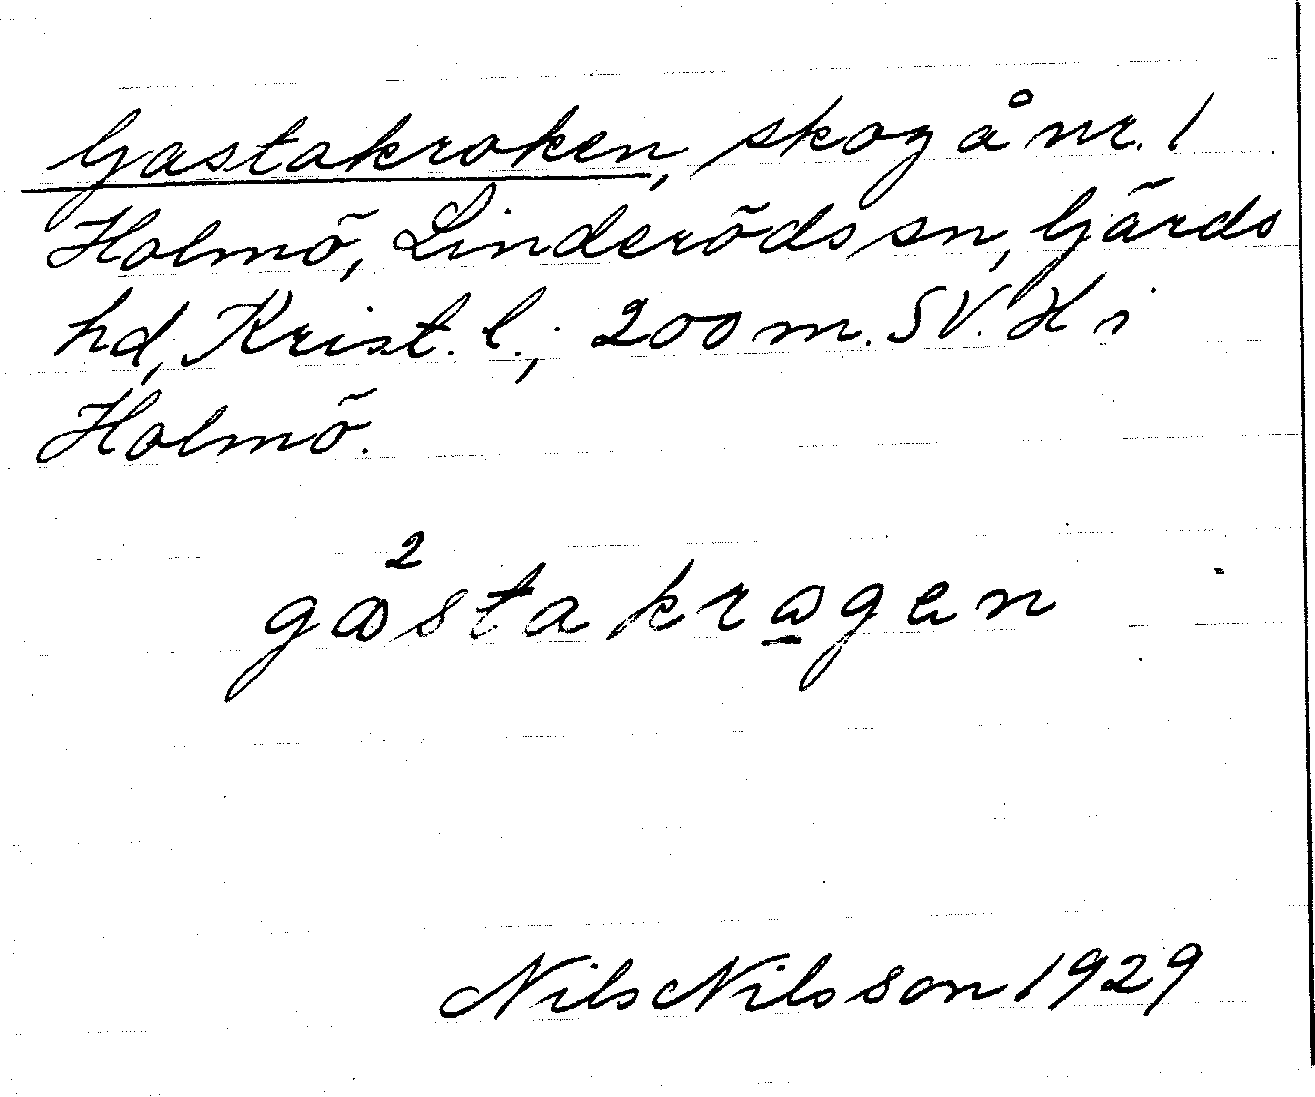 Gastakroken, skog å nr. 1
Holmö, Linderöds sn, Gärds
hd, Krist. l.; 200 m. SV. H i
Holmö.
ga²stakragen
Nils Nilsson 1929